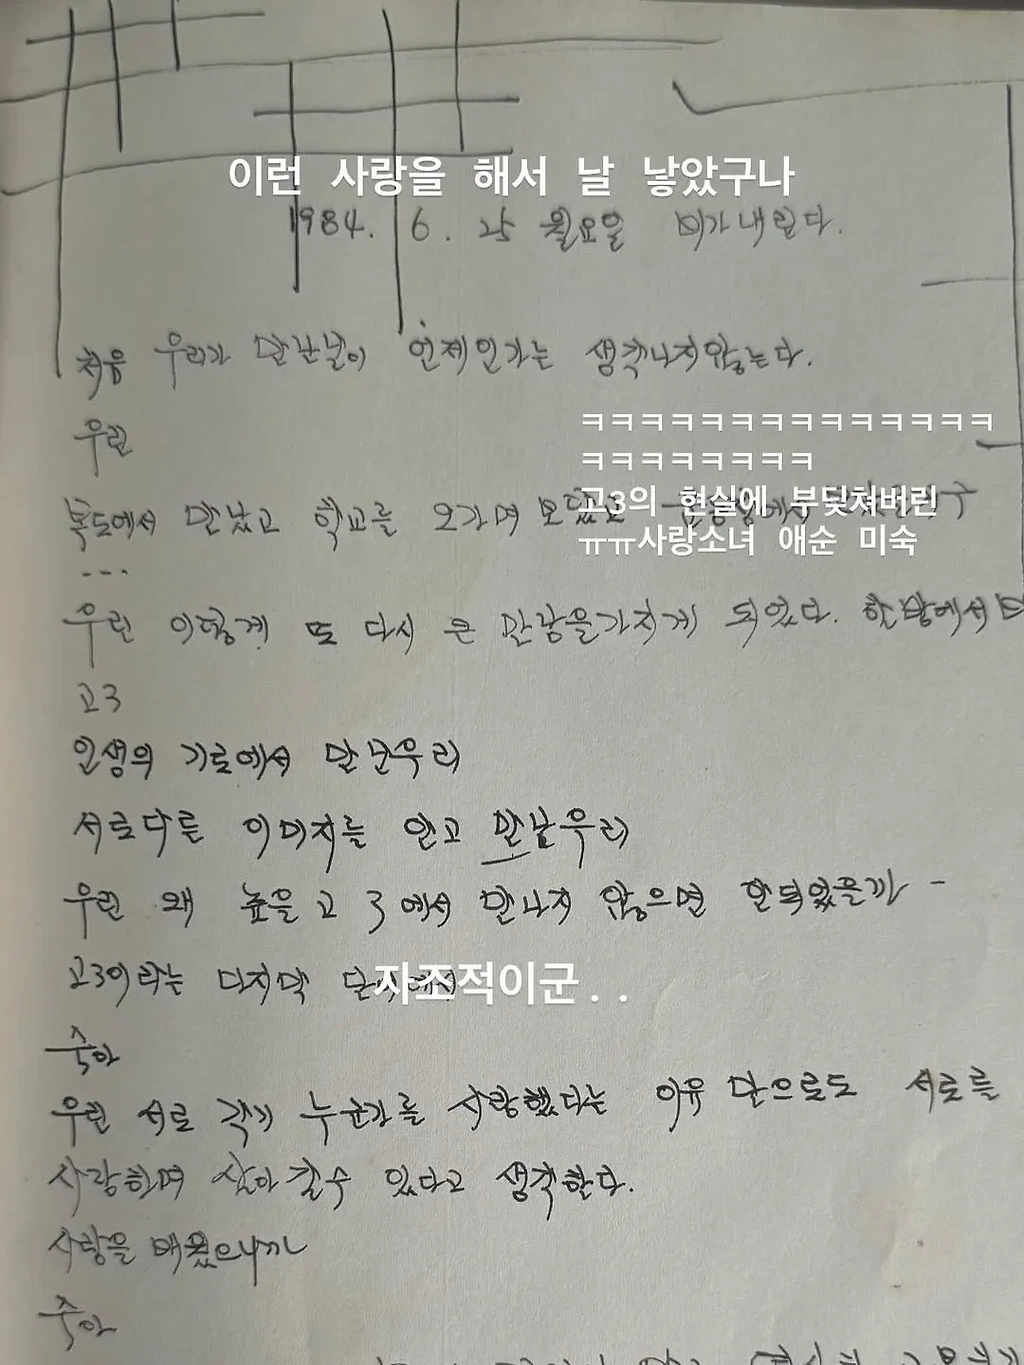 이런 사랑을 해서 날 낳았구나
1984. 6. 25 월요일 비가 내린다.
처음 우리가 만난날이 언제인가는 생각나지않는다.
ㅋㅋㅋㅋㅋㅋㅋㅋㅋㅋㅋㅋㅋㅋ
우린
ㅋㅋㅋㅋㅋㅋㅋㅋ
고3의 현실에 부딪쳐버린
복도에서 만났고 학교를 오가며
ㅠㅠ사랑소녀 애순 미숙
...
우린 이렇게 또 다시 큰 만남을가지게 되었다. 한 반에서
고3
인생의 기로에서 만난우리
서로다른 이미지를 안고 만난우리
우린 왜 높을 고 3에서 만나지 않으면 안되었을까 -
고3이라는 마지막
자조적이군..
숙아
우린 서로 각기 누군가를 사랑했다는 이유 만으로도 서로를
사랑하며 살아 갈수 있다고 생각한다.
사랑을 배웠으니까
숙아